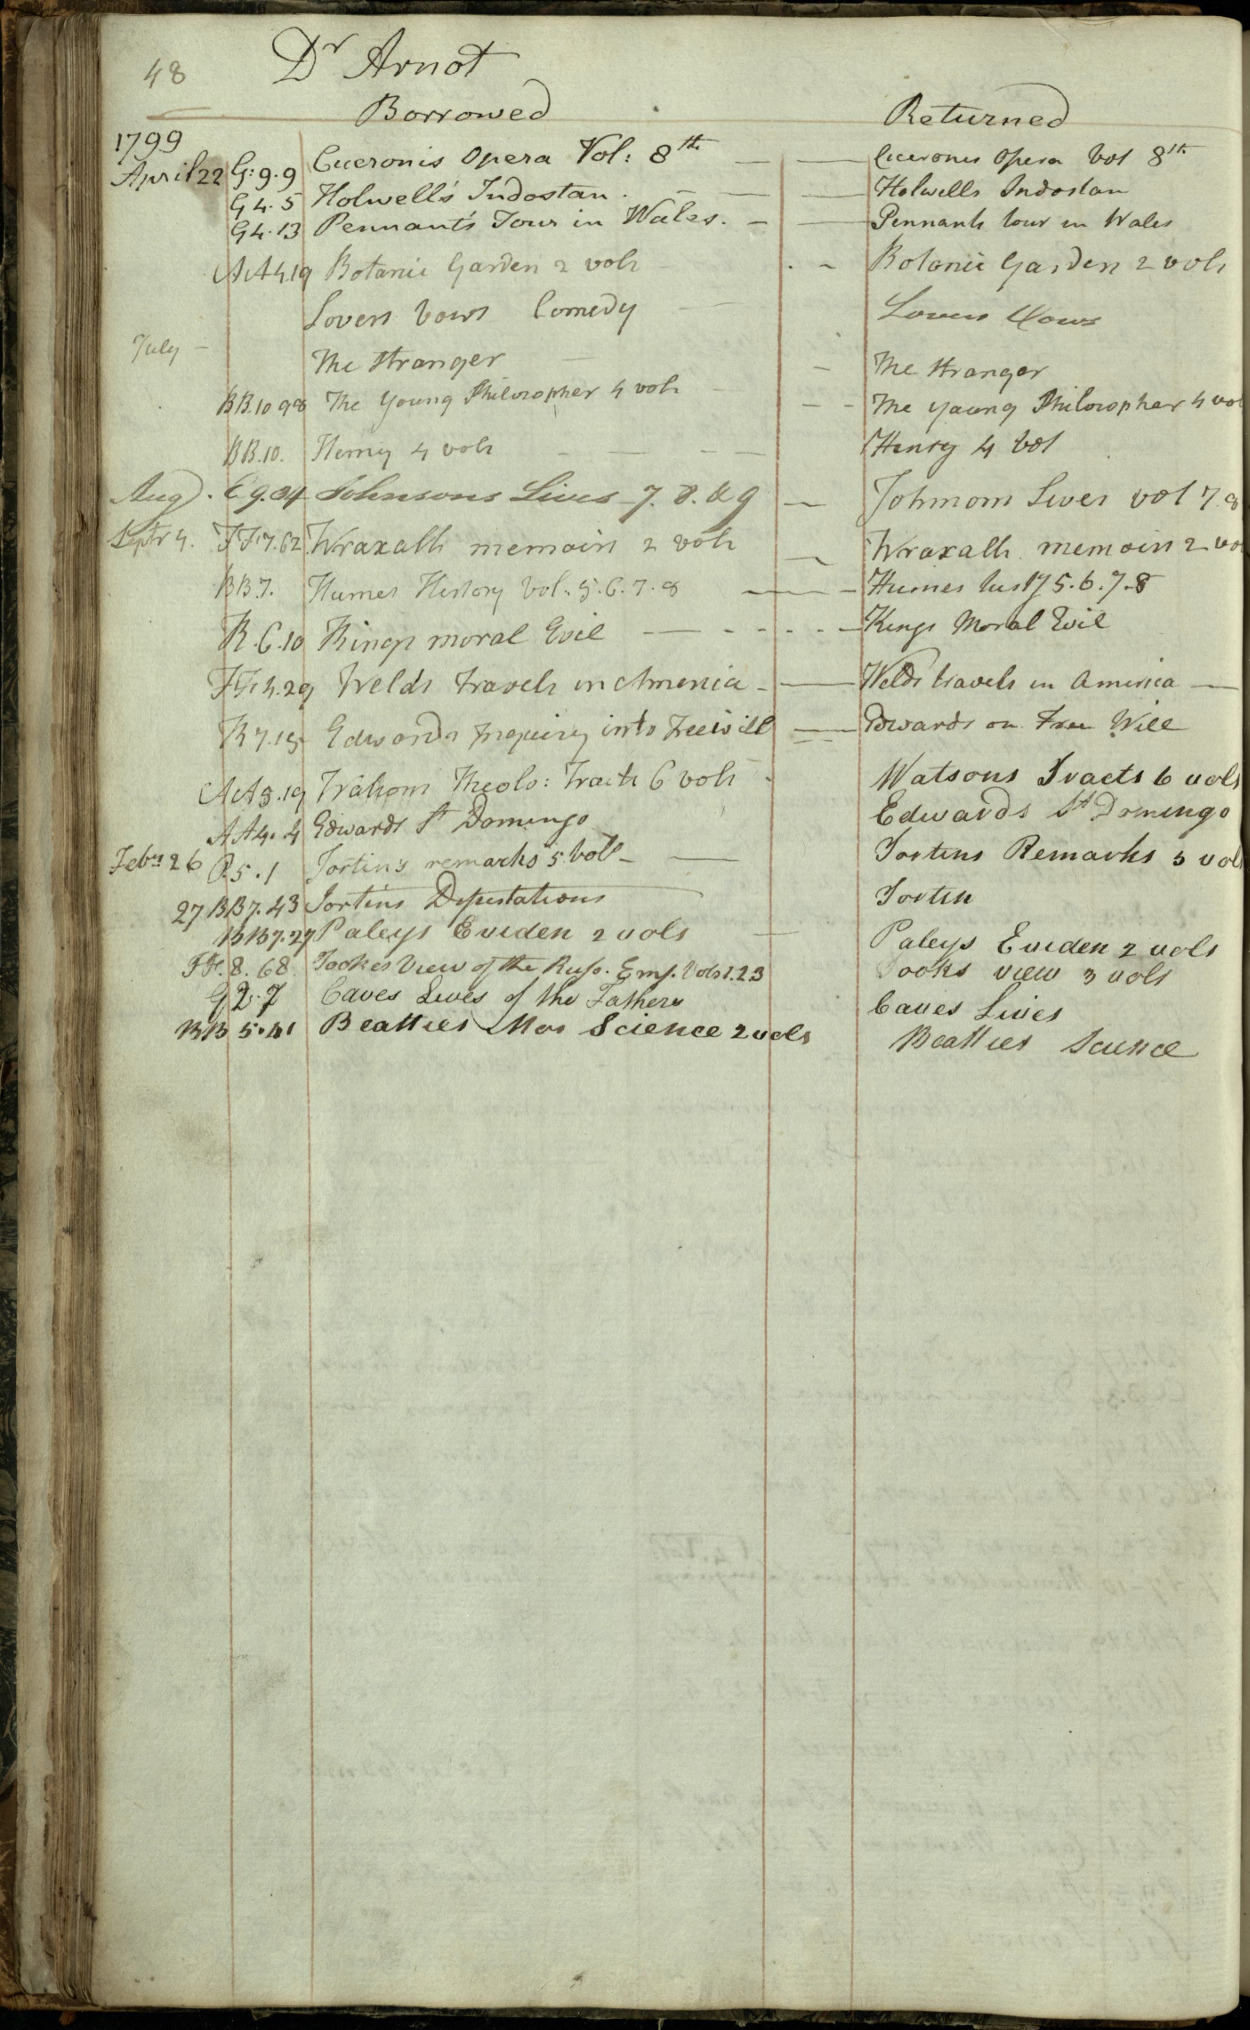 48 Dr Arnot
Borrowed Returned
1799
April 22 G:9.9 Ciceronis Opera Vol: 8th — — Ciceronis Opera Vol 8th
G 4.5 Holwell's Indostan. — — Holwells Indostan
G 4.13 Pennant's Tour in Wales. — — Pennants tour in Wales
AA 4.19 Botanic Garden 2 vols Botanic Garden 2 vols
Lovers Vows Comedy — Lovers Vows
July — The Stranger — The Stranger
BB.10 98 The Young Philosopher 4 vols — The Young Philosopher 4 vol
BB.10. Henry 4 vols — — Henry 4 Vol
Aug. Johnsons Lives 7. 8. & 9 — Johnsons Lives vol 7. 8
Septr 4. FF.7.62 Wraxalls memoirs 2 vols — Wraxalls memoirs 2 vo
BB.7. Humes History Vol. 5.6.7.8 — Humes histy 5.6.7.8
R.6.10 Kings moral Evil — Kings Moral Evil
FF.4.29 Welds travels in America — — Welds travels in America —
R 7.15 Edwards Inquiry into Freewill — Edwards on Free Will
AA 3.19 Theolo: Tracts 6 vols Watsons Tracts 6 vols
AA 4.4 Edwards St Domingo Edwards St Domingo
Feby 26 P.5.1 Jortin's remarks 5 Vols — — Jortins Remarks 5 vols
27 BB 7.43 Jortins Desertations Jortin
BB 7.27 Paleys Eviden 2 vols — Paleys Eviden 2 vols
FF. 8. 68 Tookes View of the Russ. Emp. Vols 1.2.3 Tooks view 3 vols
G 2.7 Caves Lives of the Fathers Caves Lives
BB 5.41 Beatties Mor Science 2 vols Beatties Science